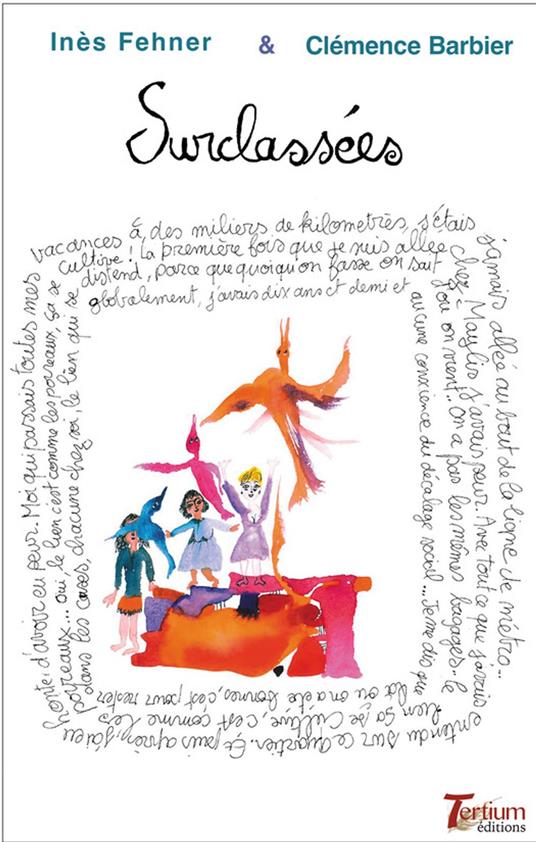 Inès Fehner & Clémence Barbier
Surclassées
globalement, j'avais dix ans et demi et
aucune conscience du décalage social... Je me dis que
là où on a été bonnes, c'est pour rester
dans les cases, chacune chez soi, le lien qui se
distend, parce que quoiqu'on fasse on sait
où on vient.. On a pas les mêmes bagages.. le
lien ça se cultive, c'est comme les
poireaux... oui, le lien c'est comme les poireaux, ça se
cultive ! La première fois que je suis allée
chez Maylis j'avais peur.. Avec tout ce que j'avais
entendu sur ce quartier. Et puis après, j'ai eu
honte, d'avoir eu peur.. Moi qui passais toutes mes
vacances à des miliers de kilometres, j'étais
jamais allée au bout de la ligne de métro...
Tertium
éditions